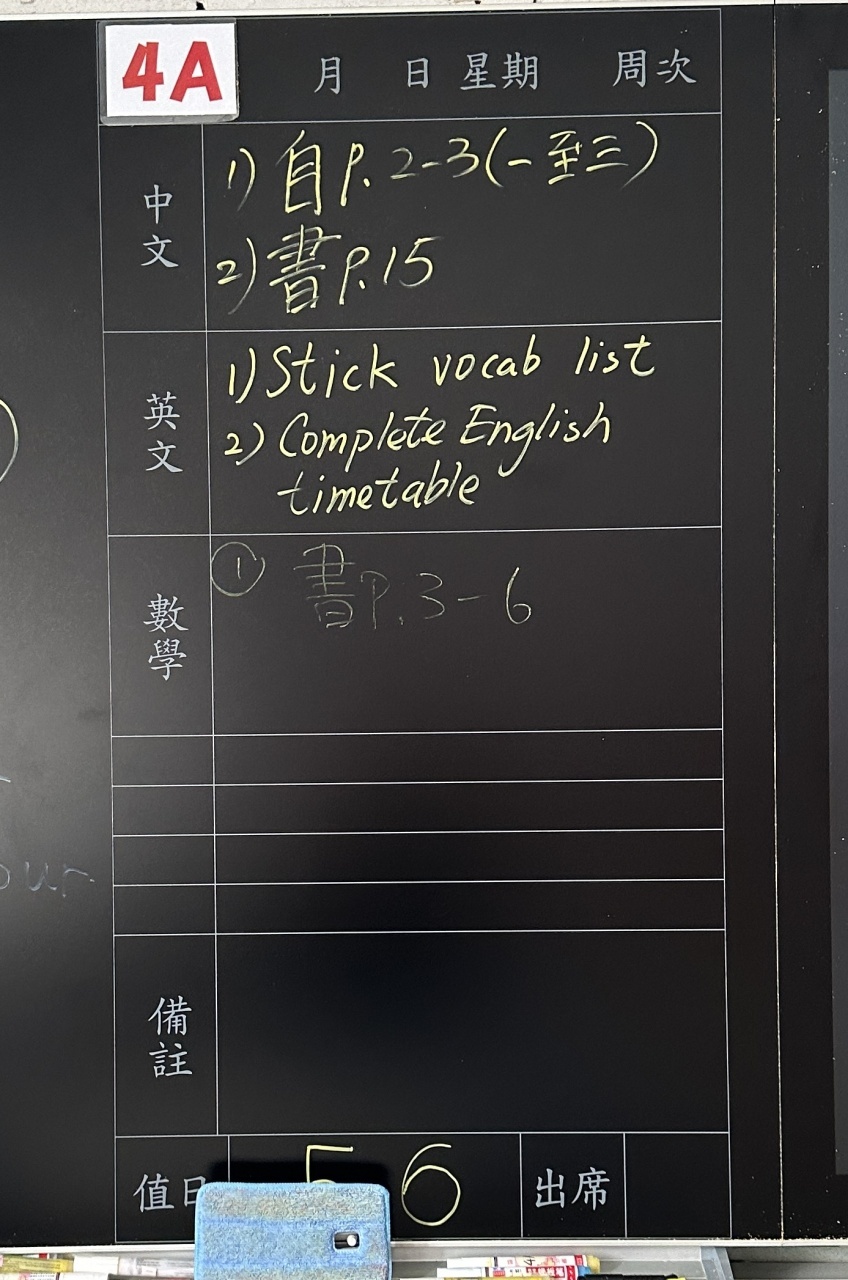 4A
月 日 星期 周次
中文
1) 自 P. 2-3 (一至三)
2) 書 P.15
英文
1) Stick vocab list
2) Complete English
timetable
數學
① 書 P. 3-6
備註
值日 5 6 出席
our